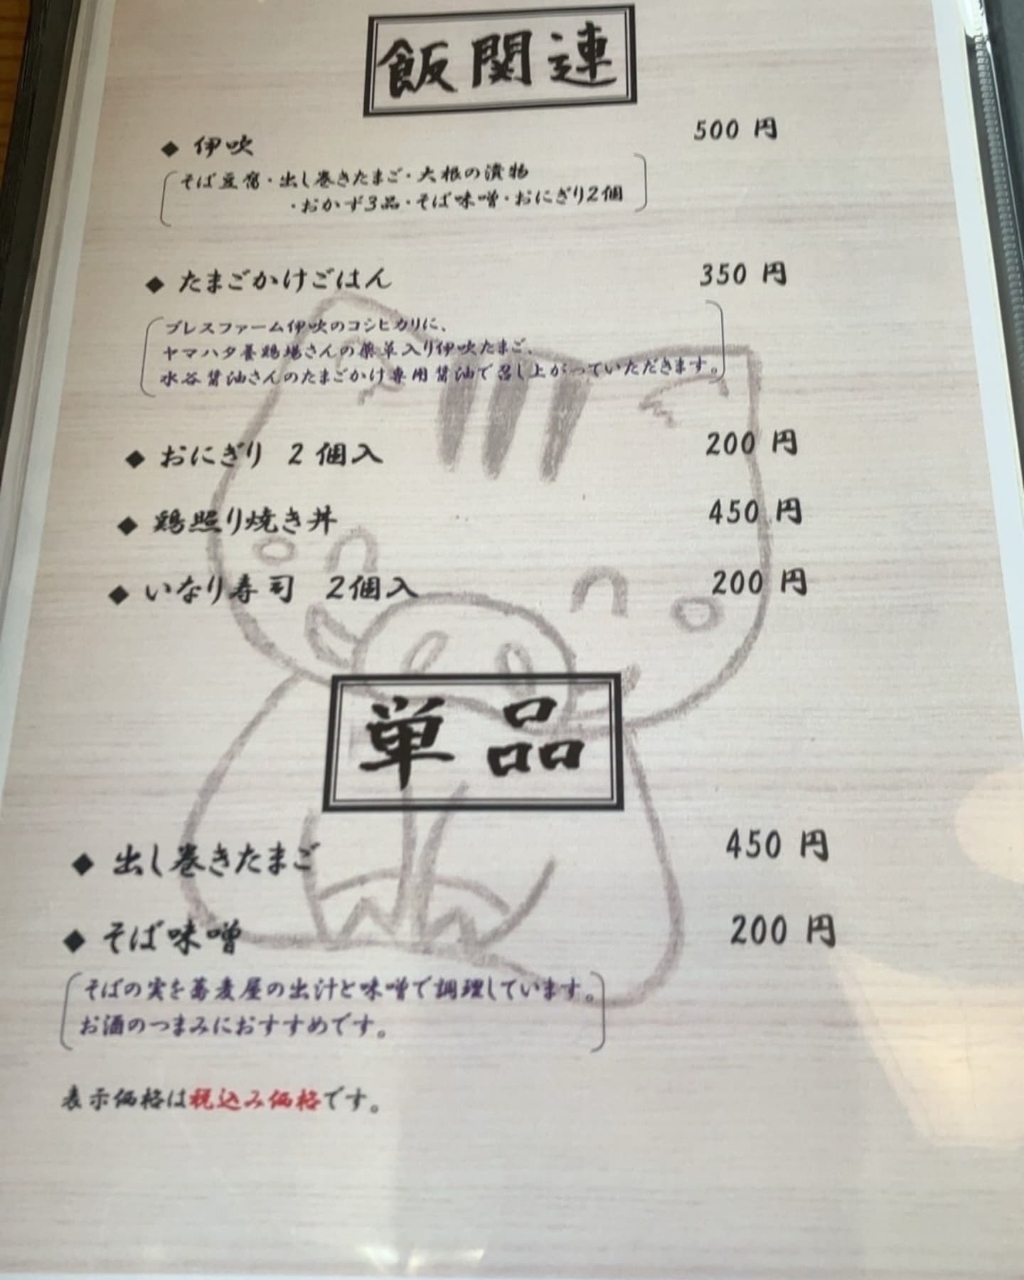 飯関連
◆ 伊吹 500 円
そば豆腐・出し巻きたまご・大根の漬物
・おかず3品・そば味噌・おにぎり2個
◆ たまごかけごはん 350 円
ブレスファーム伊吹のコシヒカリに、
ヤマハタ養鶏場さんの薬草入り伊吹たまご、
水谷醤油さんのたまごかけ専用醤油で召し上がっていただきます。
◆ おにぎり 2 個入 200 円
◆ 鶏照り焼き丼 450 円
◆ いなり寿司 2個入 200 円
単品
◆ 出し巻きたまご 450 円
◆ そば味噌 200 円
そばの実を蕎麦屋の出汁と味噌で調理しています。
お酒のつまみにおすすめです。
表示価格は税込み価格です。